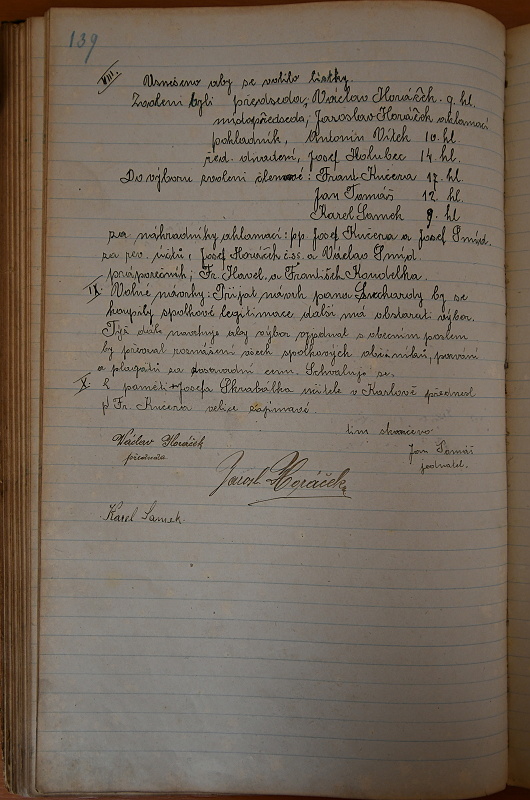 139
VIII. Usnešeno aby se volilo lístky.
Zvoleni byli předseda, Václav Horáček. 9. hl.
místopředseda, Jaroslav Horáček aklamací
pokladník, Antonín Vítek 10. hl
řed. divadení, Josef Holubec 14. hl.
Do výboru zvoleni členové: Frant. Kučera 17. hl.
Jan Tomáš 12. hl.
Karel Samek 9. hl
za náhradníky aklamací: pp. Josef Kučera a Josef Šmíd.
za rev. účtů, Josef Horáček č.s. a Václav Šmíd.
praporečník; Fr. Havel. a František Koudelka.
IX. Volné návrhy: Přijat návrh pana Suchardy by se
koupily spolkové legitimace další má obstarati výbor.
Týž dále navrhuje aby výbor vyjednal s obecním poslem
by převzal roznášení všech spolkových oběžníků, pozvání
a plagátů za stanovenou cenu. Schvaluje se.
X. Z pamětí Josefa Škrabálka učitele v Karlově přednesl
p. Fr. Kučera velice zajímavě.
tím skončeno
Václav Horáček
předseda
Jan Tomáš
jednatel.
Jarosl. Horáček
Karel Samek.